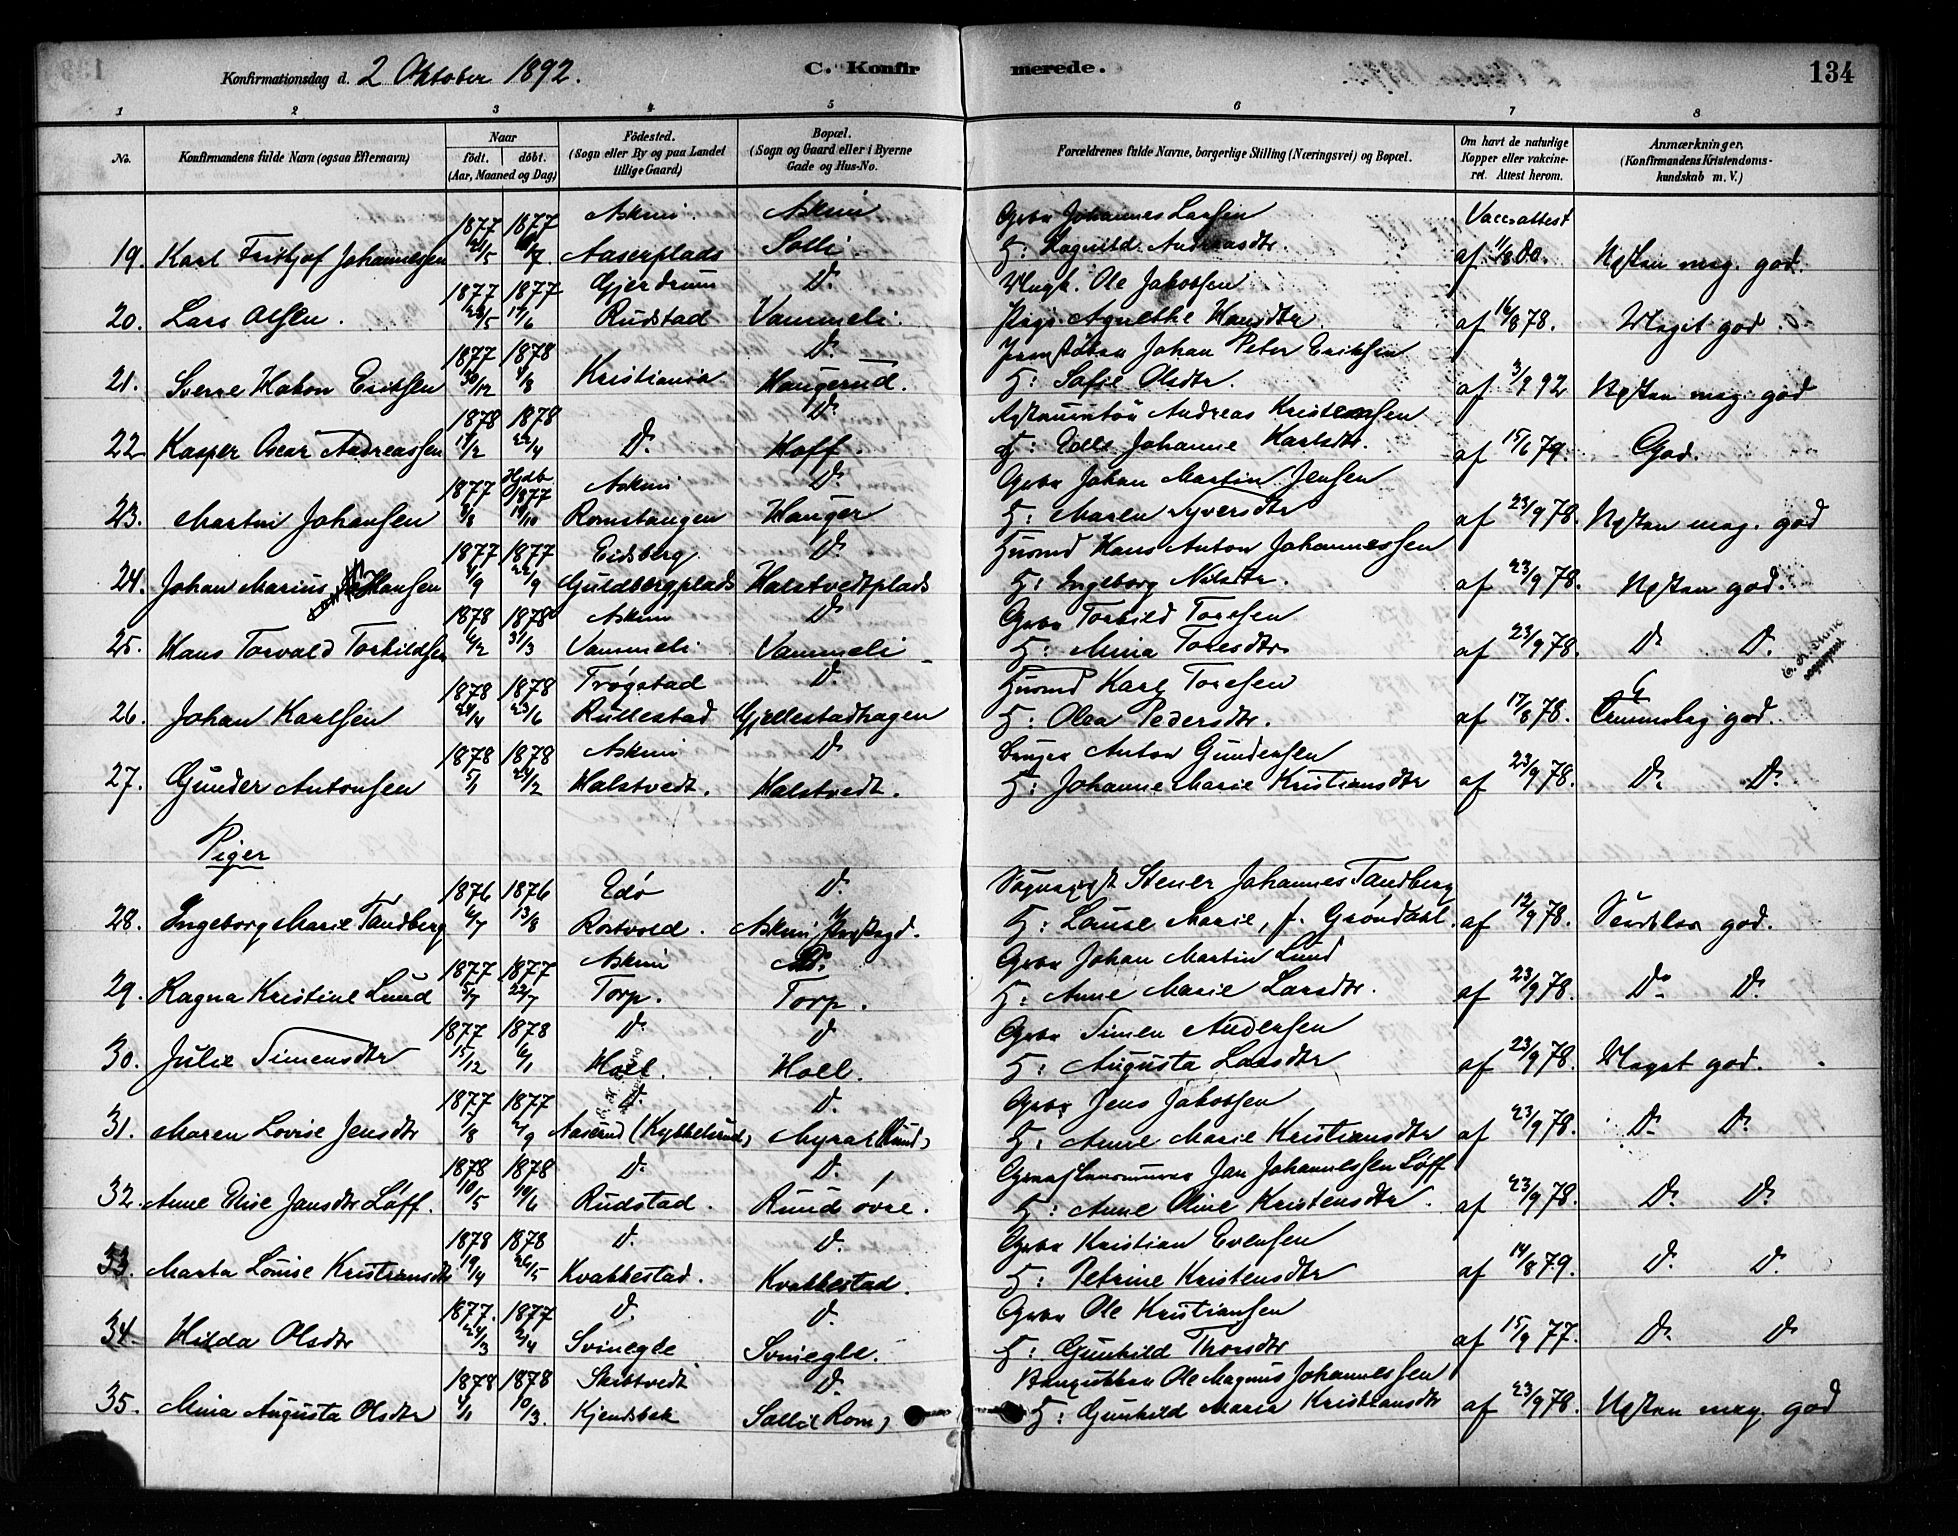 Konfirmationsdag d. 2 Oktober 1892. C. Konfirmerede. 134
1 2 3 4 5 6 7 8
No. Konfirmandens fulde Navn (ogsaa Efternavn) Naar födt. döbt. (Aar, Maaned og Dag) Födested. (Sogn eller By og paa Landet tillige Gaard) Bopæl. (Sogn og Gaard eller i Byerne Gade og Hus-No. Forældrenes fulde Navne, borgerlige Stilling (Næringsvei) og Bopæl. Om havt de naturlige Kopper eller vakcineret. Attest herom. Anmærkninger, (Konfirmandens Kristendomskundskab m. V.)
1877 1877 Askim Askim Gbr Johannes Larsen Vaccattest
19. Karl Fritjof Johannessen Aaserplads Solli H: Andreasdtr. af 11/8 80. Næsten meg. god.
1877 1877 Gjerdrum D. Ole Jakobsen
20. Lars Olsen. 17/6 Rudstad Vammeli. Pige Agnethe Hansdtr af 16/8 78. Meget god
1877 1878 D. Johan Peter Eriksen
21. Sverre Hakon Eriksen 30/12 4/8 Kristiania Haugerud. H: Sofie Olsdtr. af 3/9 92 Næsten meg. god
1878 1878 D. Andreas Kristensen
22 Kasper Oscar Andreassen 22/4 D. Hoff. H: Johanne Karlsdtr. af 15/6 79. God.
1877 Hjdb 1877 Askim D. Gbr Johan Martin Jensen
23. Martin Johansen Romstangen Hauger H: Maren Syversdtr af 23/9 78. Næsten meg. god
1877 1877 Eidsberg D Husmd Hans Anton Johannessen
24. Johan Marius Hansen 22/9 Guldbergplads Halstvedtplads H: Ingeborg Nilsdtr. af 23/9 78. Næsten god.
1878 1878 Askim D Gbr Torkild Toresen
25. Hans Torvald Torkildsen 31/3 Vammeli Vammeli H: Mina Toresdtr. af 23/9 78. D. D.
1878 1878 Trøgstad D. Husmd Karl Toresen
26. Johan Karlsen 24/4 23/6 Rullestad Gjellestadhagen H: Olea Pedersdtr. af 17/8 78. god.
1878 1878 Askim D Anton Gundersen
27. Gunder Antonsen 5/1 24/2 Halstvedt. Halstvedt. H: Johanne Marie Kristiansdtr af 23/9 78. D. D.
Piger
1876 1876 Edø D. Sognepræst Stener Johannes Tandberg
28. Ingeborg Marie Tandberg 6/7 13/8 Rostvold. Askim Prestegd. H: Louise Marie, f. Grøndahl. af 12/9 78. god.
1877 1877 Askim D. Gbr Johan Martin Lund
29. Ragna Kristine Lund 5/7 22/7 Torp. Torp. H: Anne Marie Larsdtr. af 23/9 78. D. D.
1877 1878 D. D Gbr Simen Andersen
30. Julie Simensdtr 15/12 6/1 Holl. Holl. H: Augusta Larsdtr af 23/9 78. Meget god.
1877 1877 D. D. Gbr Jens Jakobsen
31. Maren Lovise Jensdtr Aaserud (Kykkelsrud) Myra (Rund) H: Anne Marie Kristiansdtr af 23/9 78. D. D.
1878 1878 D. D. Jan Johannessen Løff
32. Anne Elise Jansdtr Løff. 10/5 19/6 Rudstad. Ruud øvre. H: Anne Oline Kristensdtr. af 23/9 78. D. D.
1878 1878 D. D. Gbr Kristian Evensen
33. Marta Louise Kristiansdtr 19/4 26/5 Kvakkestad. Kvakkestad. H: Petrine Kristensdtr af 14/8 79. D. D.
1877. 1877 D. D. Gbr Ole Kristiansen
34 Hilda Olsdtr 24/3 2/4 Svinegle Svinegle. H: Gunhild Thorsdtr af 15/9 77. D. D
1878 1878 Skiptvedt D. Ole Magnus Johannessen
35. Mina Augusta Olsdtr 10/3. Kjendsbek Solli (Rom) H: Gunhild Maria Kristiansdtr af 23/9 78. Næsten meg. god